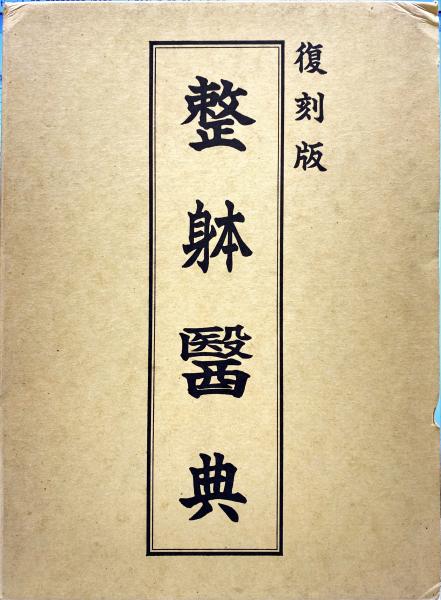 復刻版
整躰醫典